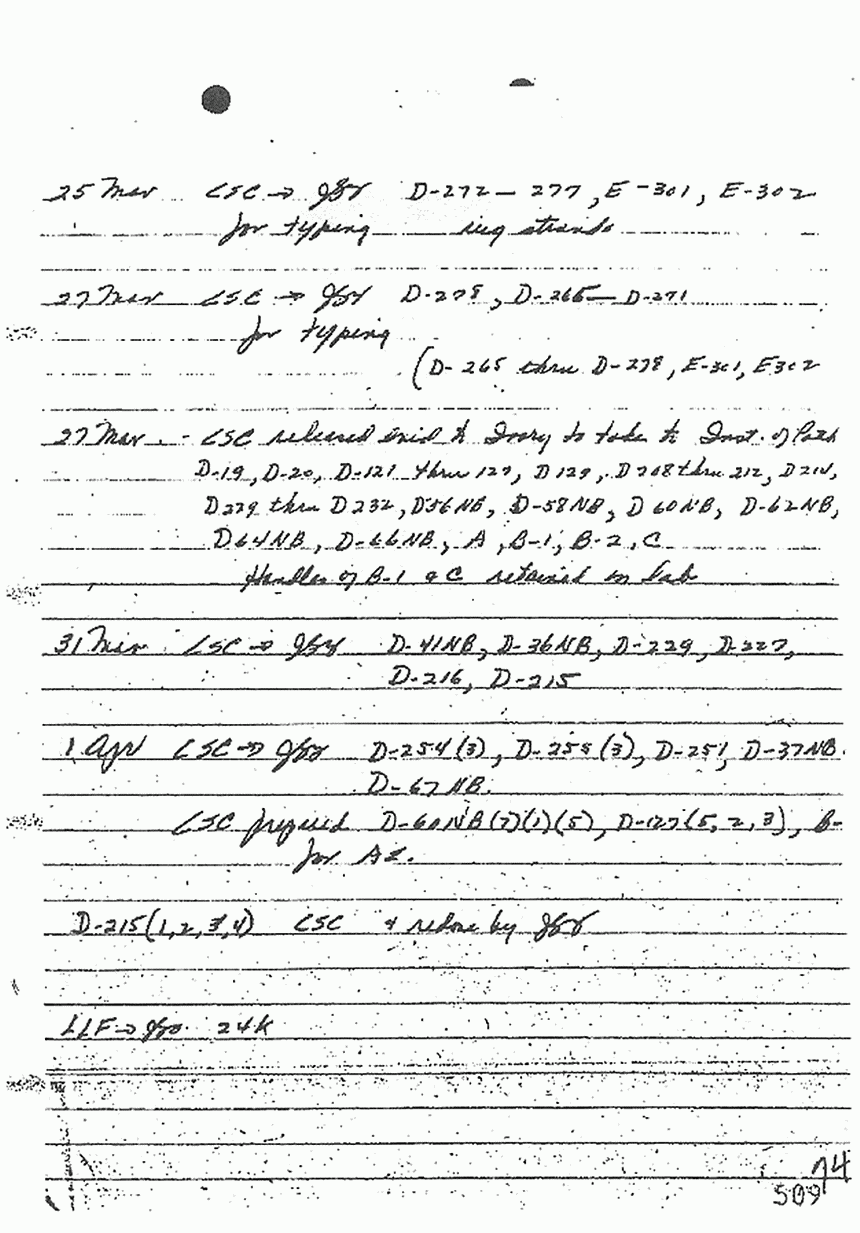 25 Mar CSC → D-272 — 277, E-301, E-302
for typing strands
27 Mar CSC → D-278, D-265 — D-271
for typing
(D-265 thru D-278, E-301, E302
27 Mar. - CSC released to Ivory to take to Inst. of Path
D-19, D-20, D-121 thru 127, D129, D208 thru 212, D214,
D229 thru D232, D56NB, D-58NB, D60NB, D-62NB,
D64NB, D-66NB, A, B-1, B-2, C
Handles of B-1 & C retained in lab
31 Mar CSC → D-41NB, D-36NB, D-229, D-227,
D-216, D-215
1 Apr CSC → D-254(3), D-255(3), D-251, D-37NB.
D-67NB.
CSC prepared D-60NB(7)(1)(5), D-127(5, 2, 3), B-
for
D-215(1,2,3,4) CSC & redone by
LLF → 24K
74
509